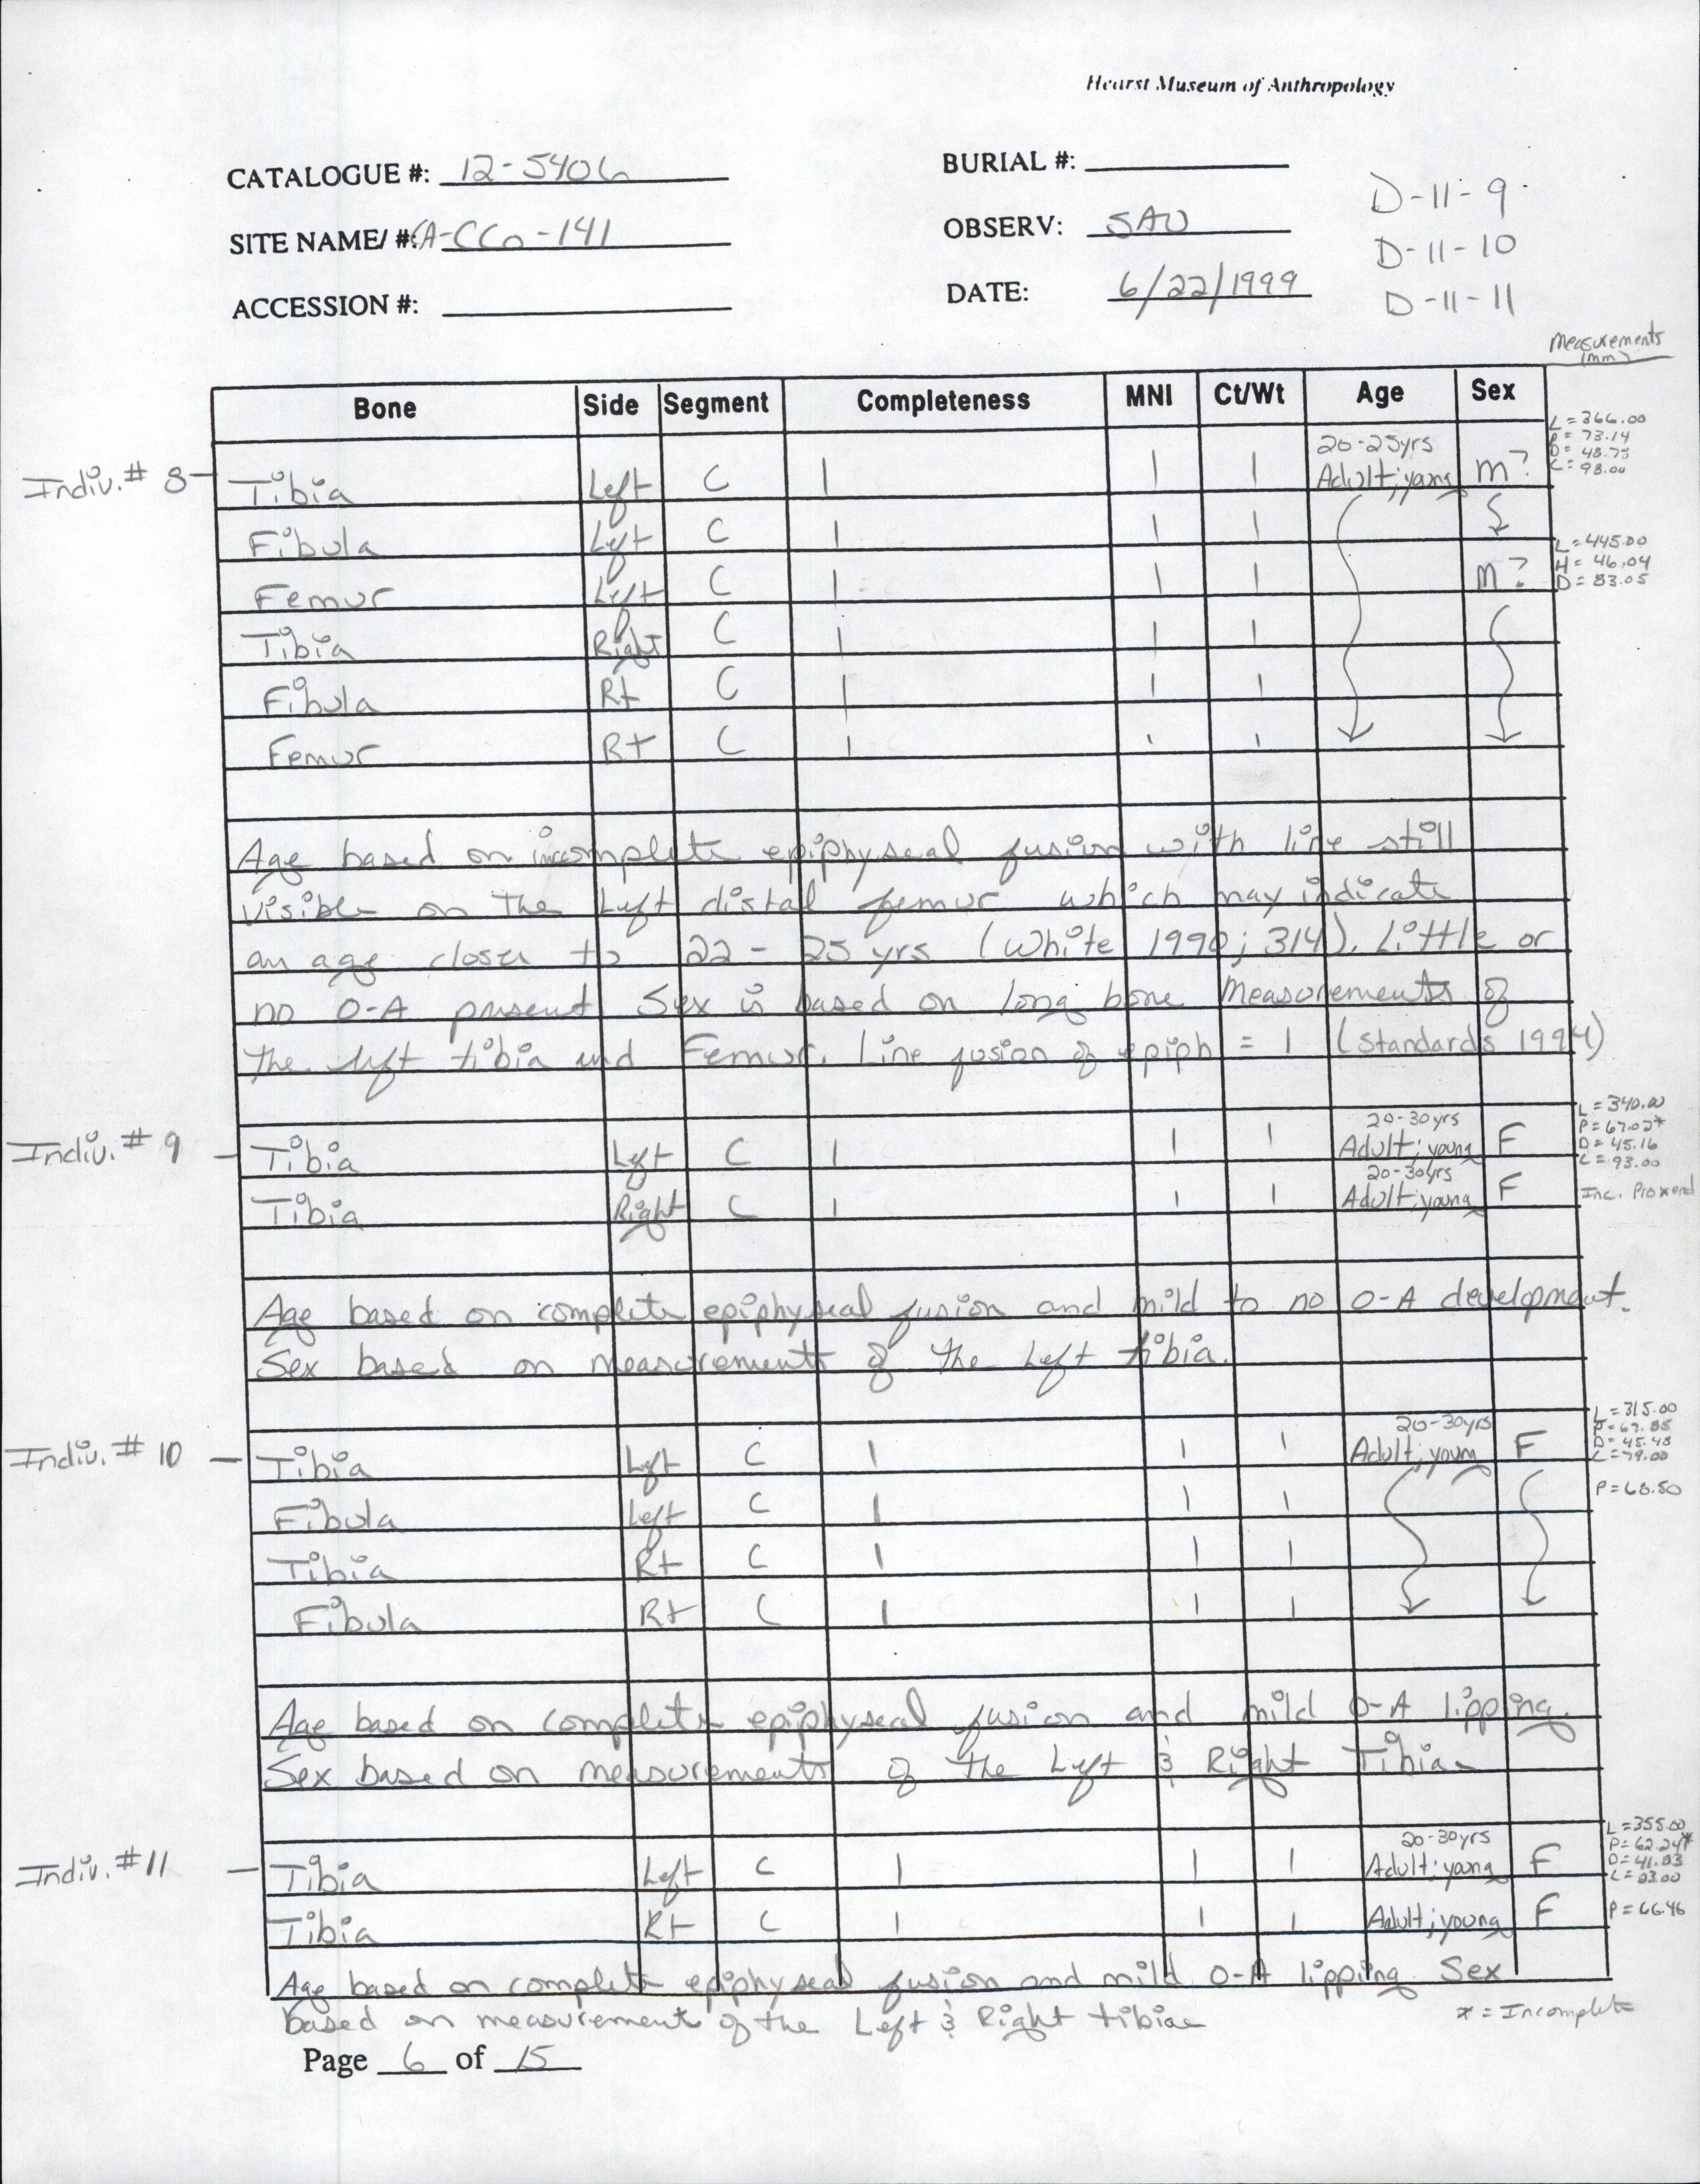 Hearst Museum of Anthropology
CATALOGUE #: 12-5406
BURIAL #:
D-11-9
SITE NAME/ #: CA-CCo-141
OBSERV: SAU
D-11-10
ACCESSION #:
DATE: 6/22/1999
D-11-11
Measurements
(mm)
Bone Side Segment Completeness MNI Ct/Wt Age Sex
Indiv. # 8 - Tibia Left C 1 1 1 20-25yrs Adult; young m? L = 366.00
P = 73.14
D = 48.75
C = 98.00
Fibula Left C 1 1 1
Femur Left C 1 1 1 m? L = 445.00
H = 46.04
D = 83.05
Tibia Right C 1 1 1
Fibula Rt C 1 1 1
Femur Rt C 1 1 1
Age based on incomplete epiphyseal fusion with line still
visible on the Left distal femur which may indicate
an age closer to 22 - 25 yrs (White 1990; 314). Little or
no O-A present Sex is based on long bone measurements of
the left tibia and Femur. Line fusion of epiph = 1 (Standards 1994)
Indiv. # 9 - Tibia Left C 1 1 1 20-30yrs Adult; young F L = 340.00
P = 67.02*
D = 45.16
C = 93.00
Tibia Right C 1 1 1 20-30yrs Adult; young F Inc. Prox end
Age based on complete epiphyseal fusion and mild to no O-A development.
Sex based on measurements of the Left tibia.
Indiv. # 10 - Tibia Left C 1 1 1 20-30yrs Adult; young F L = 315.00
P = 67.85
D = 45.48
C = 79.00
Fibula Left C 1 1 1 P = 68.50
Tibia Rt C 1 1 1
Fibula Rt C 1 1 1
Age based on complete epiphyseal fusion and mild O-A lipping.
Sex based on measurements of the Left & Right Tibiae
Indiv. # 11 - Tibia Left C 1 1 1 20-30yrs Adult; young F L = 355.00
P = 62.24*
D = 41.83
C = 83.00
Tibia Rt C 1 1 1 Adult; young F P = 66.46
Age based on complete epiphyseal fusion and mild O-A lipping Sex
based on measurements of the Left & Right tibiae
* = Incomplete
Page 6 of 15